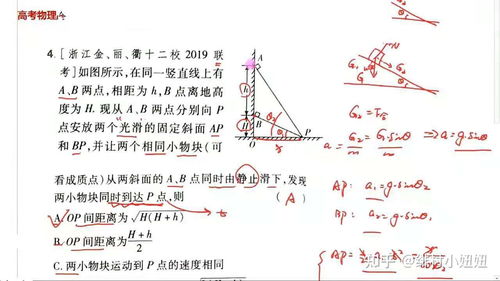 高考物理
4. [浙江金、丽、衢十二校 2019 联
考]如图所示,在同一竖直线上有
A、B 两点,相距为 h,B 点离地高
度为 H. 现从 A、B 两点分别向 P
点安放两个光滑的固定斜面 AP
和 BP,并让两个相同小物块(可
看成质点)从两斜面的 A、B 点同时由静止滑下,发现
两小物块同时到达 P 点,则 ( A )
A. OP 间距离为 √H(H+h)
B. OP 间距离为 H+h/2
C. 两小物块运动到 P 点的速度相同
A
h
H
B
O
P
θ₂
N
G₁
G₂
G₂ = F合
G₂ = G·sinθ ⇒ a = g·sinθ
a =
m
m
AP: a₁ = g·sinθ₂
BP: a₂ = g·sinθ₁
AP =
知乎